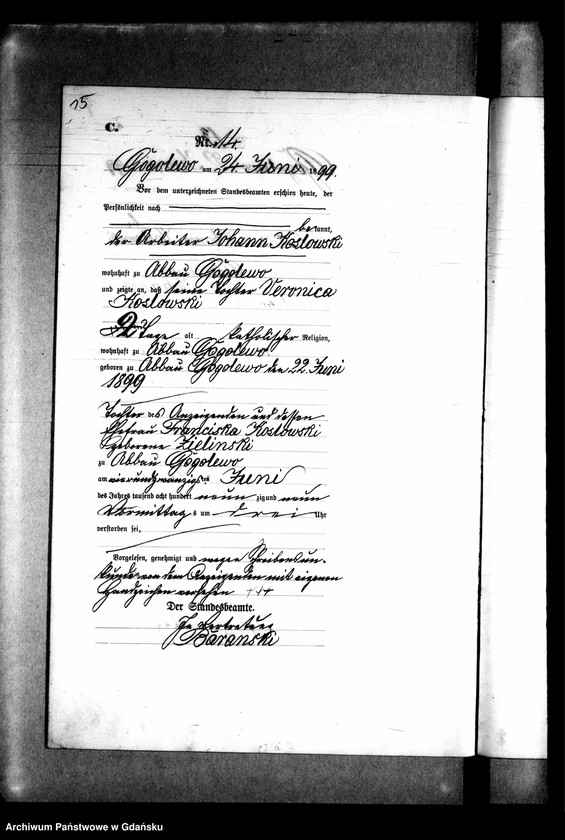 15
C.
Nr. 14
Gogolewo am 24 Juni 1899.
Vor dem unterzeichneten Standesbeamten erschien heute, der
Persönlichkeit nach
bekannt,
der Arbeiter Johann Koslowski
wohnhaft zu Abbau Gogolewo
und zeigte an, daß seine Tochter Veronica
Koslowski
2 Tage alt katholischer Religion,
wohnhaft zu Abbau Gogolewo
geboren zu Abbau Gogolewo den 22. Juni
1899
Tochter des Anzeigenden und dessen
Ehefrau Franciska Koslowski
geborene Zielinski
zu Abbau Gogolewo
am vierundzwanzigsten Juni
des Jahres tausend acht hundert neunzig und neun
Vormittags um drei Uhr
verstorben sei.
Vorgelesen, genehmigt und wegen Schreibensun-
kunde von dem Anzeigenden mit eigenen
Handzeichen versehen +++
Der Standesbeamte.
In Vertretung
Baranski
Archiwum Państwowe w Gdańsku